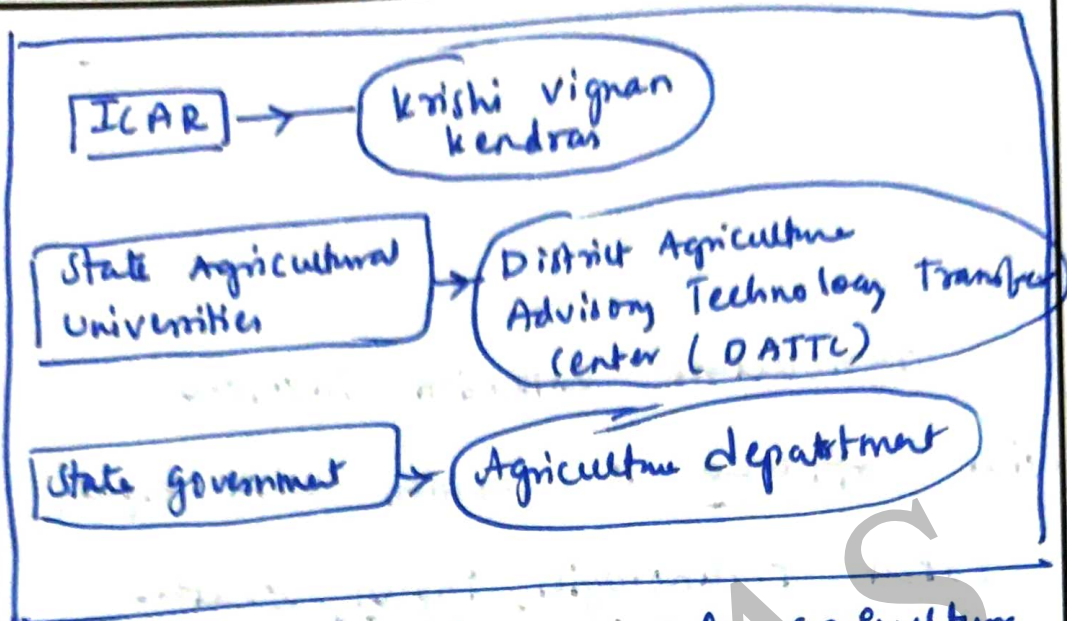 ICAR
Krishi Vignan
Kendras
State Agricultural
Universities
District Agriculture
Advisory Technology Transfer
Center (DATTC)
State government
Agriculture department